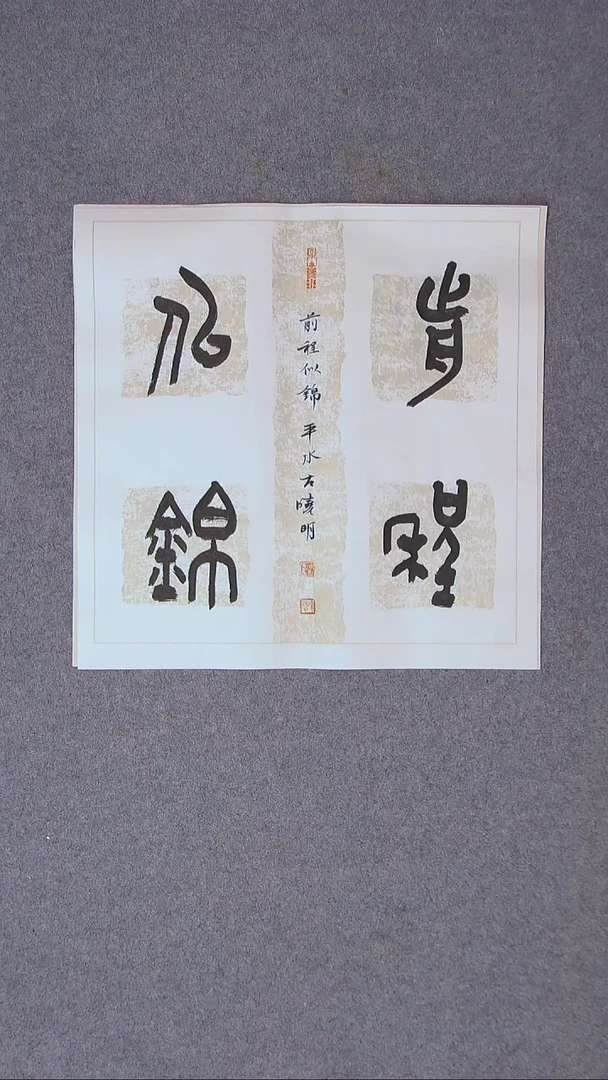 前程
似錦
前程似錦 平水古曉明